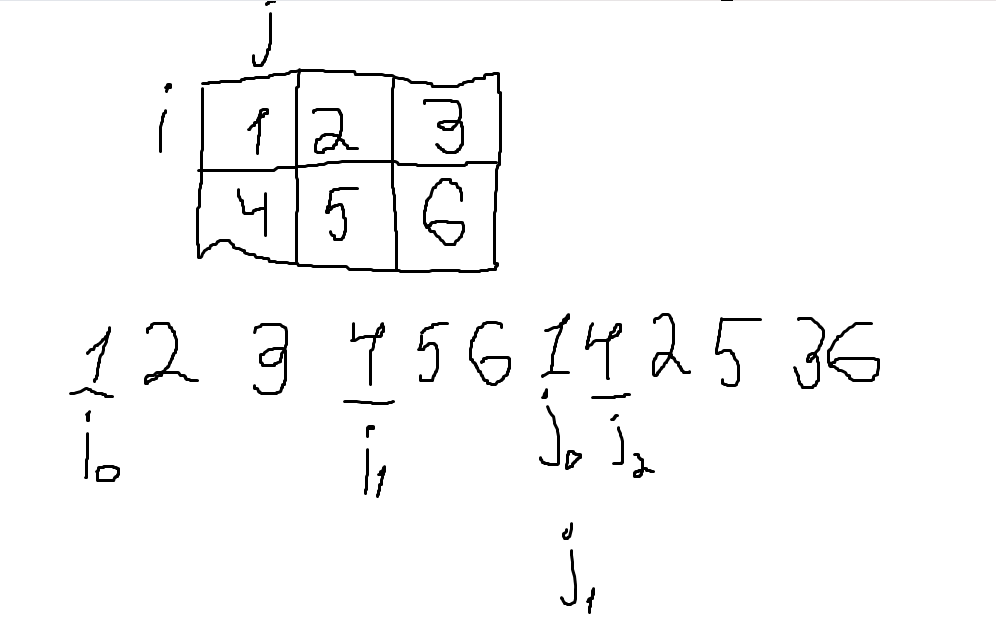 j
i 1 2 3
4 5 6
1 2 3 4 5 6 1 4 2 5 3 6
i0 i1 j0 j2
j1